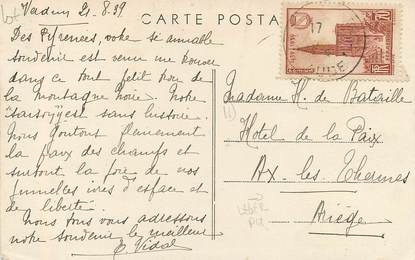 Verdun 21.8.39
CARTE POSTA
Des Pyrénées, votre si aimable
souvenir est venu me trouver
dans ce tout petit trou de
la montagne noire. Notre
sans histoire.
Nous goûtons pleinement
la paix des champs et
surtout la joie de nos
jumelles ivres d'espace et
de liberté.
Nous tous vous adressons
notre souvenir le meilleur
E. Vidal
17
70
Madame H. de
Hotel de la Paix
Ax-les-Thermes
Ariège